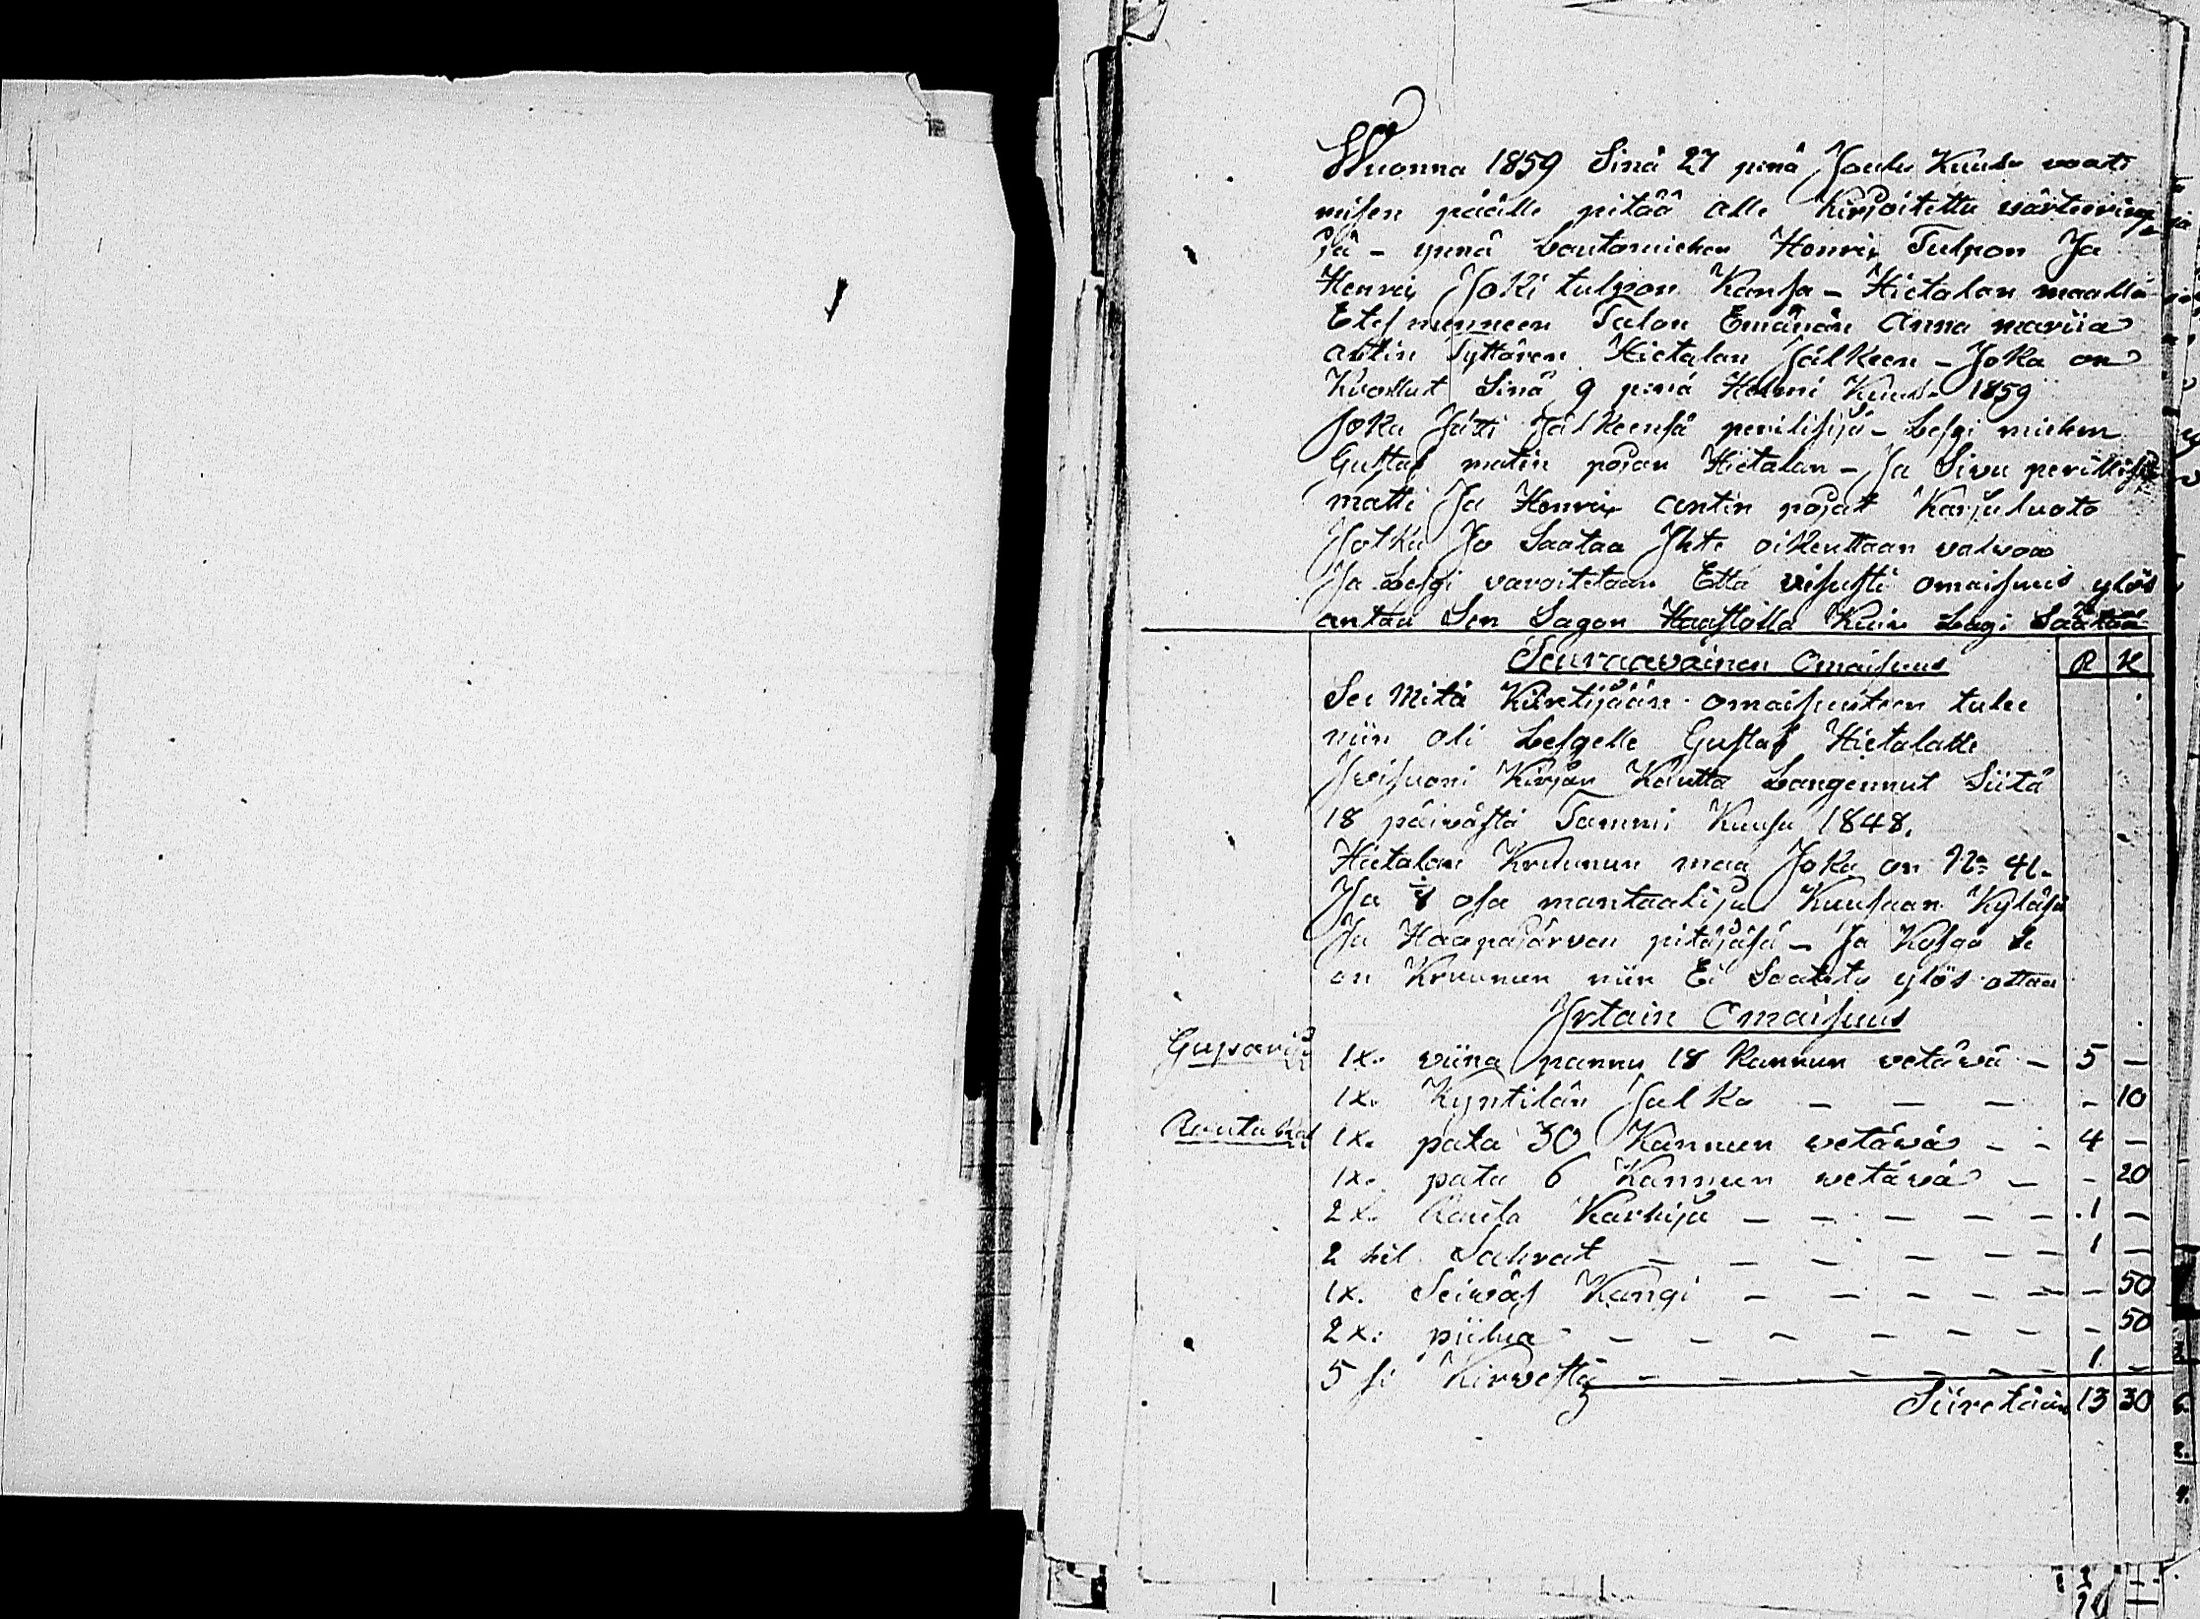 Wuonna 1859 Sinä 27 penä Joulu Kuusa vaati
misen päälle pitää alle Kirjoitettu wärteerinz
jä - ynnä Lautamiehen Henrix Tulpon Ja
Henrix Joki tulpon Kansa - Hietalan maalla
Etes menneen Talon Emänän Anna mariia
antin Tyttären Hietalan Jälkeen - Joka on
Kuollut Sinä 9 penä Helmi Kuusa 1859
Joka Jätti Jälkeensä perilisijä - Lesgi miehen
Gustaf matin pojan Hietalan - Ja Sivu perillise
matti Ja Henrix antin pojat Karjaluoto
Jotka Jo Saataa Jhte oikeuttaan valwoa
Ja Lesgi varoitetaan Että visusti omaisuus ylös
antaa Sen Sagon Haastolla Kuin Lagi Säätää
Seuraavainen Omaisuus R K
See Mitä Kiintijään omaisuuteen tulee
niin oli Lesgelle Gustaf Hietalalle
Kirjan Kautta Langennut Siitä
18 päivästä Tammi Kuusa 1848.
Hietalan Kruunun maa Joka on No 41.
Ja 1/8 osa mantaalija Kuusaan Kyläsä
Ja Haapajärven pitäjäsä - Ja Kosga se
on Kruunun niin Ei Saateta ylös ottaa
Jrtain Omaisuus
Guparia 1x. viina pannu 18 Kannun vetäwä - 5 -
1x. Kyntilän Jalka - - - - 10
Rauta kal 1x. pata 30 Kannun wetäwä - - 4 -
1x. pata 6 Kannun wetäwä - - 20
2x. Rauta Karhija - - - - - 1 -
2 kil Sahrat - - - - - 1 -
1x. Seiwäs Kangi - - - - - - 50
2x. piilua - - - - - - - - 50
5 si Kirwestä - - - - - - 1 -
Siiretään 13 30